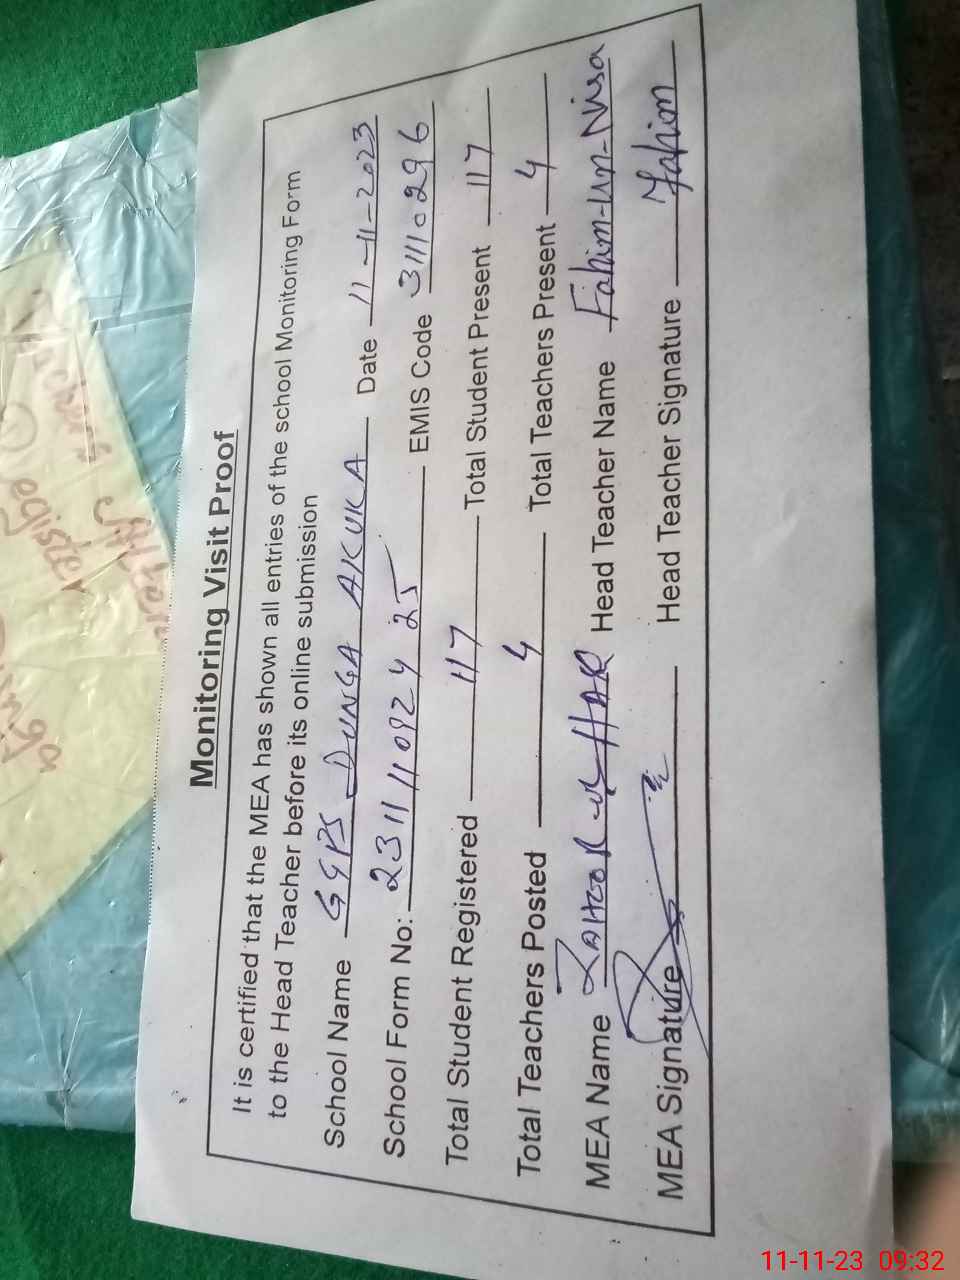 Monitoring Visit Proof
It is certified that the MEA has shown all entries of the school Monitoring Form
to the Head Teacher before its online submission
School Name GGPS DUNGA AKUKA Date 11-11-2023
School Form No: 2311110924 25 EMIS Code 31110296
Total Student Registered 117 Total Student Present 117
Total Teachers Posted 4 Total Teachers Present 4
MEA Name ZAHOOR ul HAQ Head Teacher Name Fahim-Un-Nisa
MEA Signature Head Teacher Signature Fahim
Register
11-11-23 09:32